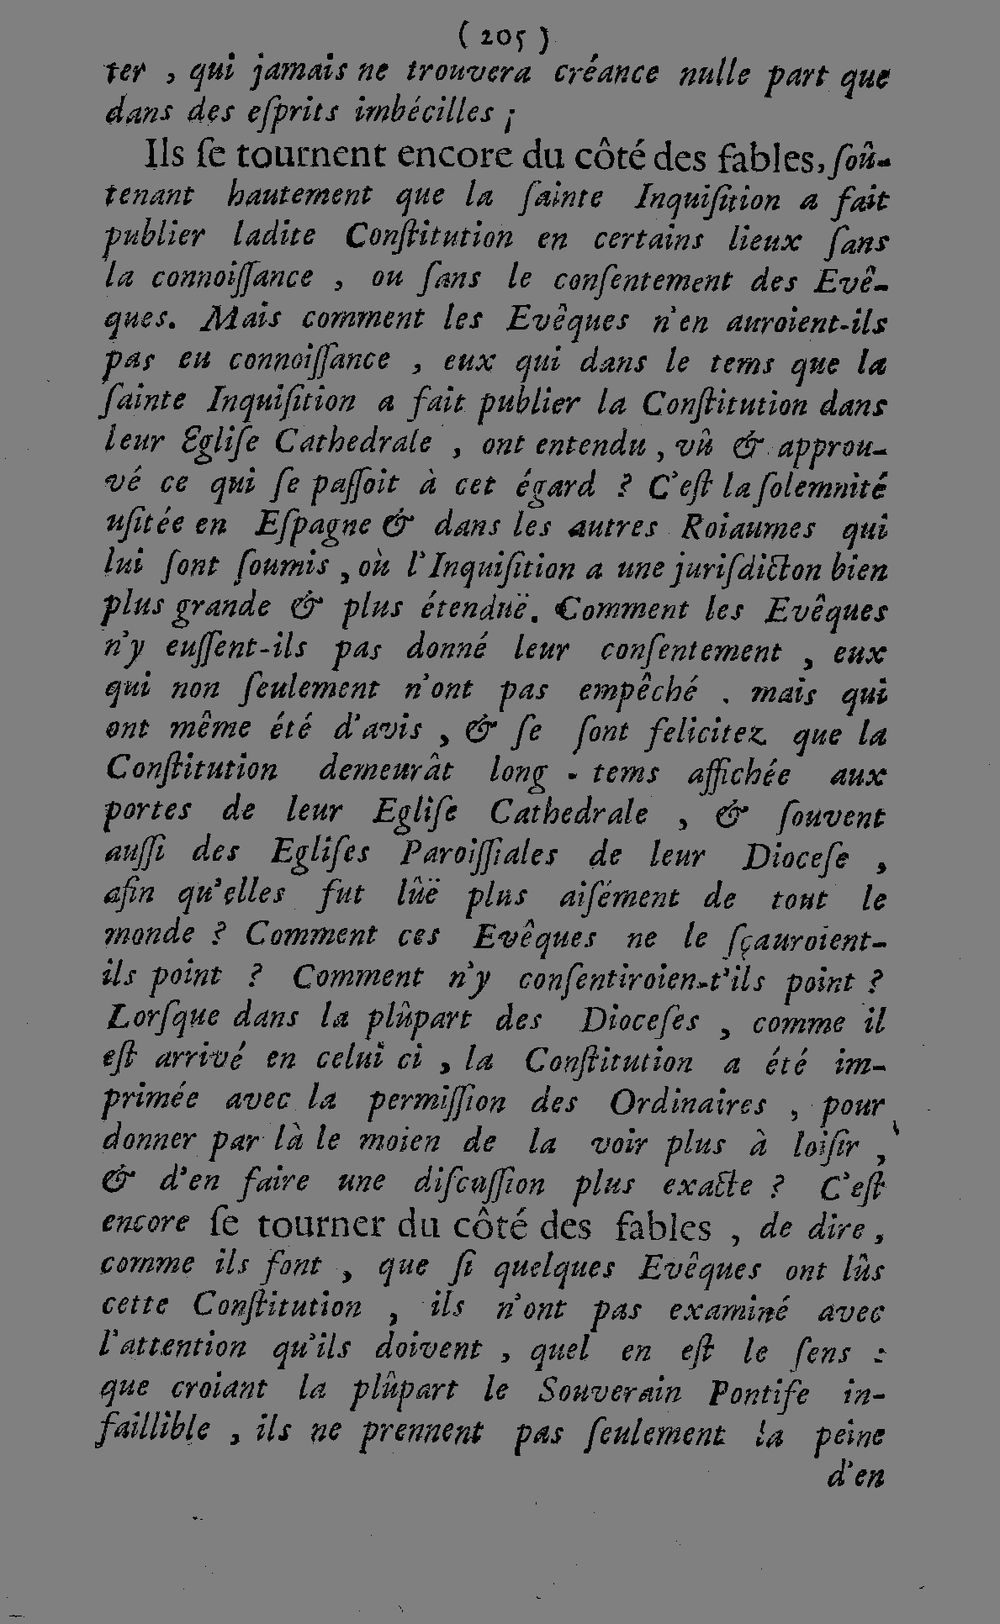 ( 205 )
ter , qui jamais ne trouvera créance nulle part que
dans des eſprits imbécilles ;
Ils ſe tournent encore du côté des fables, ſoû-
tenant hautement que la ſainte Inquiſition a fait
publier ladite Conſtitution en certains lieux ſans
la connoiſſance , ou ſans le conſentement des Evê-
ques. Mais comment les Evêques n'en auroient-ils
pas eu connoiſſance , eux qui dans le tems que la
ſainte Inquiſition a fait publier la Conſtitution dans
leur Egliſe Cathedrale , ont entendu , vû & approu-
vé ce qui ſe paſſoit à cet égard ? C'eſt la ſolemnité
uſitée en Eſpagne & dans les autres Roiaumes qui
lui ſont ſoumis , où l'Inquiſition a une juriſdicton bien
plus grande & plus étenduë. Comment les Evêques
n'y euſſent-ils pas donné leur conſentement , eux
qui non ſeulement n'ont pas empêché . mais qui
ont même été d'avis , & ſe ſont felicitez que la
Conſtitution demeurât long - tems affichée aux
portes de leur Egliſe Cathedrale , & ſouvent
auſſi des Egliſes Paroiſſiales de leur Dioceſe ,
afin qu'elles fut lûë plus aiſément de tout le
monde ? Comment ces Evêques ne le ſçauroient-
ils point ? Comment n'y conſentiroien-t'ils point ?
Lorſque dans la plûpart des Dioceſes , comme il
eſt arrivé en celui ci , la Conſtitution a été im-
primée avec la permiſſion des Ordinaires , pour
donner par là le moien de la voir plus à loiſir ,
& d'en faire une diſcuſſion plus exacte ? C'eſt
encore ſe tourner du côté des fables , de dire ,
comme ils font , que ſi quelques Evêques ont lûs
cette Conſtitution , ils n'ont pas examiné avec
l'attention qu'ils doivent , quel en eſt le ſens :
que croiant la plûpart le Souverain Pontife in-
faillible , ils ne prennent pas ſeulement la peine
d'en